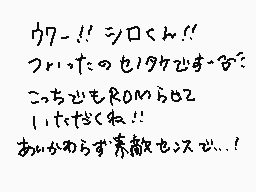 ウワー!! シロくん!!
ついったのセノタケですーv
こっちでもROMらせて
いただくね!!
あいかわらず素敵センスで…!